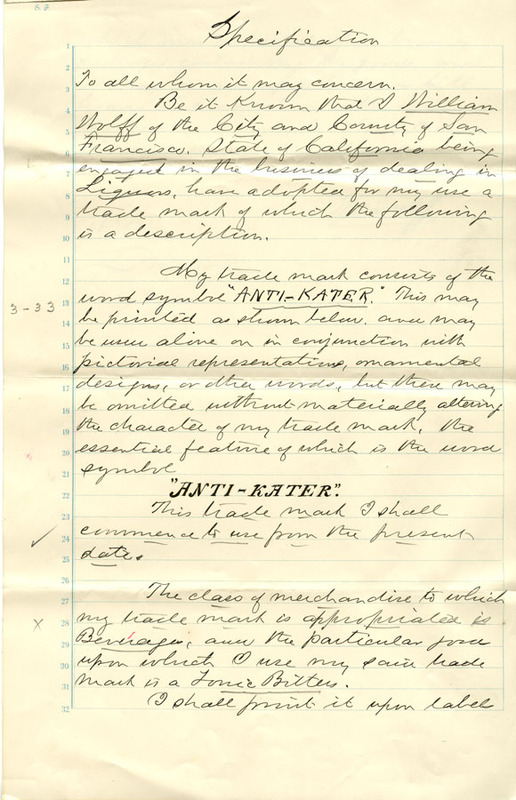 Specification
1
2
3
4
5
6
7
8
9
10
11
12
13
14
15
16
17
18
19
20
21
22
23
24
25
26
27
28
29
30
31
32
To all whom it may concern.
Be it Known that I William
Wolff of the City and County of San
Francisco. State of California being
engaged in the business of dealing in
Liquors, have adopted for my use a
trade mark of which the following
is a description.
My trade mark consists of the
word symbol "ANTI-KATER." This may
3-33
be printed as shown below. and may
be used alone or in conjunction with
pictorial representations, ornamental
designs, or other words, but these may
be omitted without materially altering
the character of my trade mark, the
essential feature of which is the word
symbol
"ANTI-KATER".
This trade mark I shall
commence to use from the present
date.
The class of merchandise to which
my trade mark is appropriated is
X
Beverages, and the particular good
upon which I use my said trade
mark is a Tonic Bitters.
I shall print it upon labels